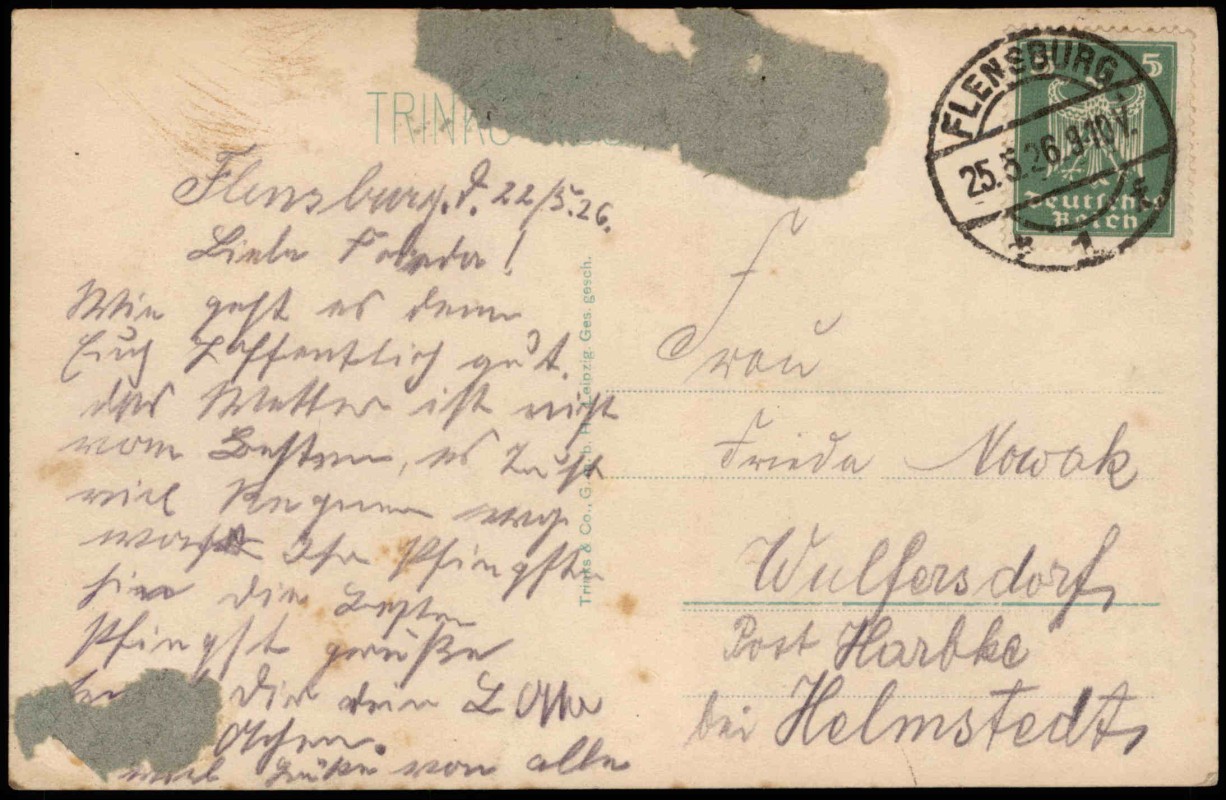 TRINKS
Flensburg. d. 22/5.26.
Liebe Frieda!
Wie geht es denn
Euch hoffentlich gut.
das Wetter ist nicht
vom Besten, es
viel Regnen
Ihr Pfingsten
hier die Besten
Pfingst grüße
Dir dein Otto
viel Grüße von alle
Trinks & Co., G.m.b.H., Leipzig. Ges. gesch.
FLENSBURG
25.5.26.9-10V.
* 1 f
5 5
Deutsches
Reich
Frau
Frieda Nowak
Wulfersdorf,
Post Harbke
bei Helmstedt,